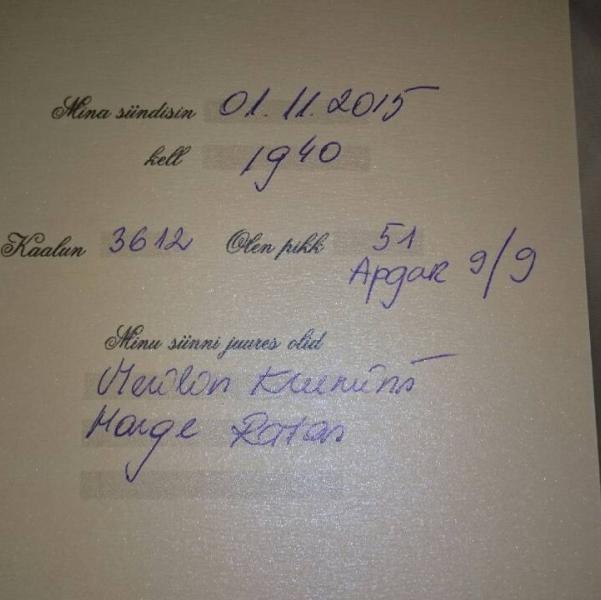 Mina sündisin 01.11.2015
kell 19 40
Kaalun 3612 Olen pikk 51
Apgar 9/9
Minu sünni juures olid
Marge Ratas